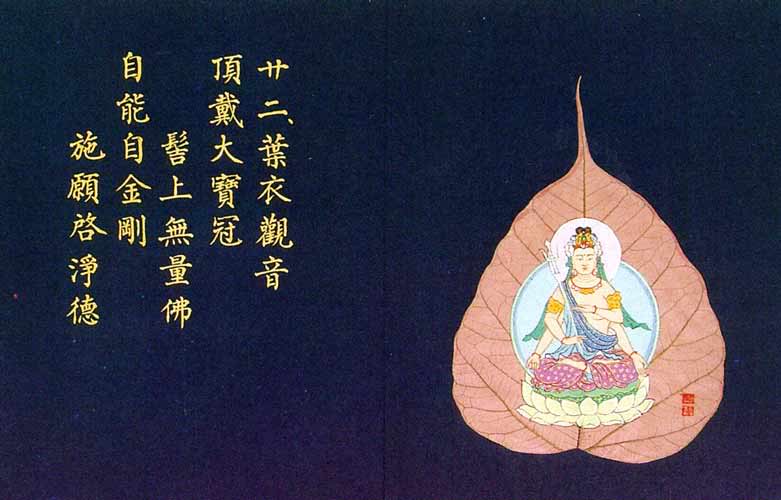 廿二、葉衣觀音
頂戴大寶冠
髻上無量佛
自能自金剛
施願啓淨德